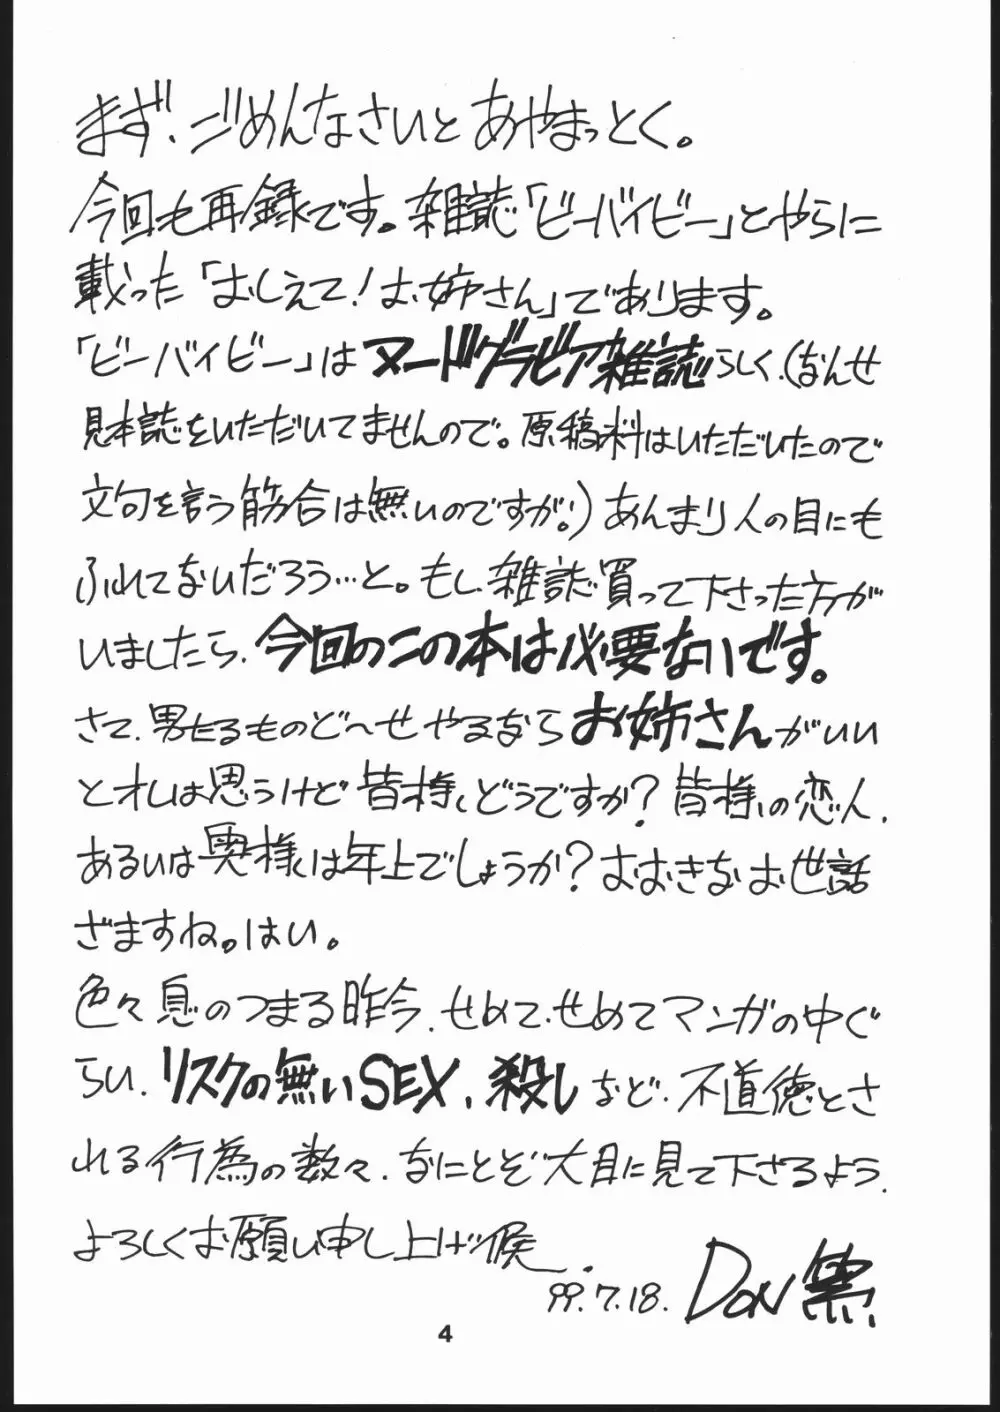 まず、ごめんなさいとあやまっとく。
今回も再録です。雑誌「ビーバイビー」とやらに
載った「おしえて!お姉さん」であります。
「ビーバイビー」はヌードグラビア雑誌らしく、(なんせ
見本誌をいただいてませんので。原稿料はいただいたので
文句を言う筋合は無いのですが。)あんまり人の目にも
ふれてないだろう…と。もし、雑誌買って下さった方が
いましたら、今回のこの本は必要ないです。
さて、男たるものど〜せやるならお姉さんがいい
とオレは思うけど皆様、どうですか?皆様の恋人、
あるいは奥様は年上でしょうか?おおきなお世話
ざますね。はい。
色々息のつまる昨今、せめて、せめてマンガの中ぐ
らい、リスクの無いSEX、殺しなど、不道徳とさ
れる行為の数々、なにとぞ大目に見て下さるよう、
よろしくお願い申し上げ候。
99.7.18. DON繁
4